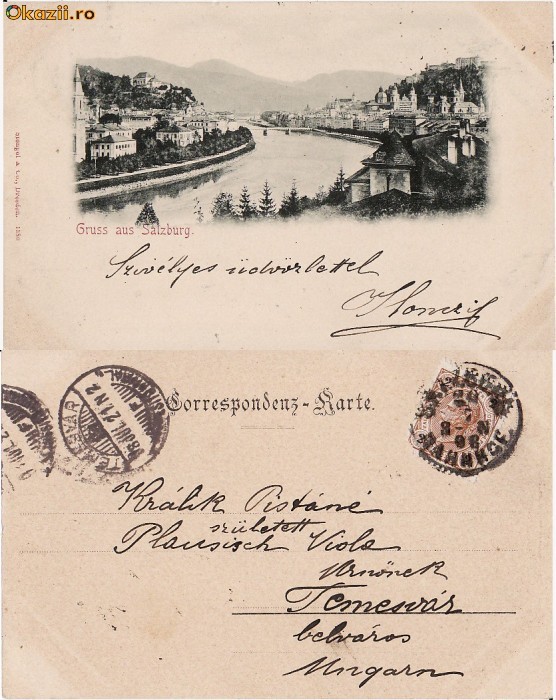 Okazii.ro
Stengel & Co., Dresden. 1580
Gruss aus Salzburg.
Szívélyes üdvözlettel
Correspondenz-Karte.
TEMESVÁR
98 JUL. 21. N 2
SALZBURG
20 7
98
BAHNHOF
Králik Pistáné
született
Plausisch Viola
Urnőnek
Temesvár
belváros
Ungarn